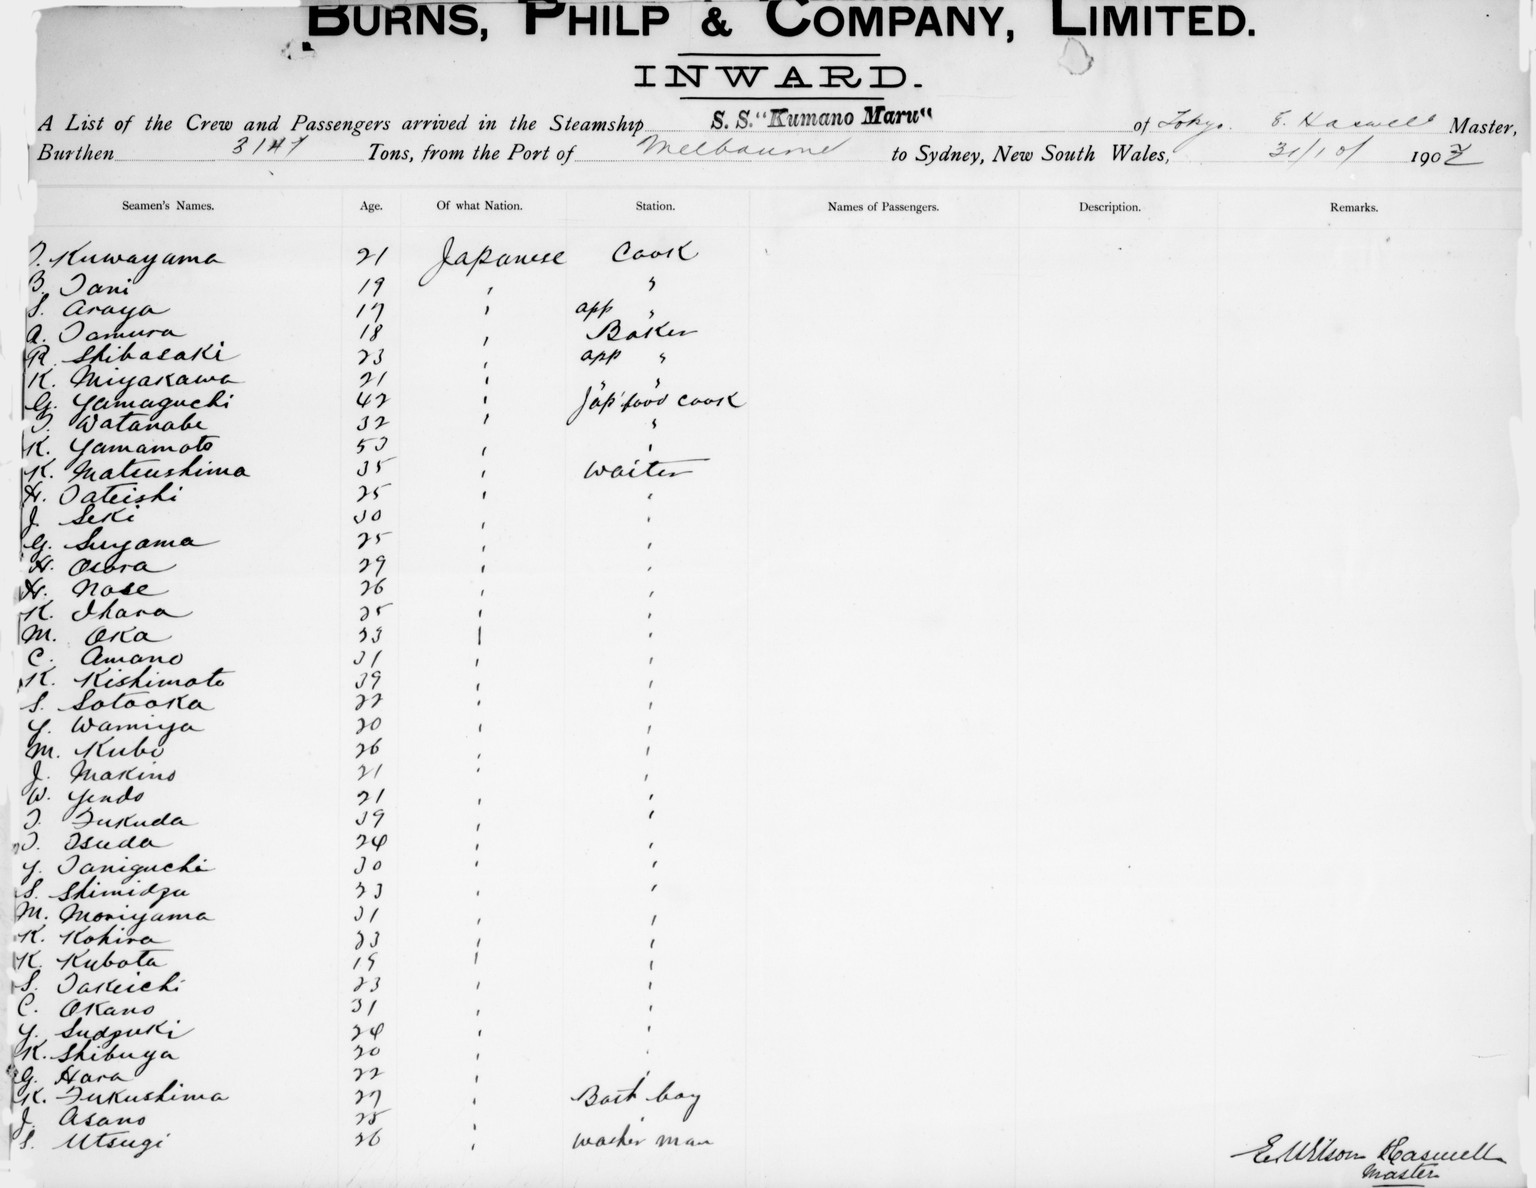 BURNS, PHILP & COMPANY, LIMITED.
INWARD.
A List of the Crew and Passengers arrived in the Steamship S. S. "Kumano Maru" of Tokyo. E. Haswell Master,
Burthen 3147 Tons, from the Port of Melbourne to Sydney, New South Wales, 31/1 07 1907
Seamen's Names. Age. Of what Nation. Station. Names of Passengers. Description. Remarks.
T. Kuwayama 21 Japanese Cook
B. Tani 19 " "
S. Araya 17 " app "
A. Tamura 18 " Baker
R. Shibasaki 23 " app "
K. Miyakawa 21 " " "
G. Yamaguchi 42 " Jap food cook
T. Watanabe 32 " "
K. Yamamoto 53 " "
K. Matsushima 35 " waiter
H. Tateishi 25 " "
J. Seki 30 " "
G. Suyama 25 " "
H. Osara 29 " "
H. Nose 26 " "
K. Ihara 25 " "
M. Oka 33 " "
C. Amano 31 " "
K. Kishimoto 39 " "
S. Sotooka 22 " "
Y. Wamiya 20 " "
M. Kubo 26 " "
J. Makino 21 " "
W. Yendo 21 " "
T. Fukuda 39 " "
T. Tsuda 24 " "
Y. Taniguchi 30 " "
S. Shimidzu 33 " "
M. Moriyama 31 " "
K. Kohira 23 " "
K. Kubota 19 " "
S. Takeichi 23 " "
C. Okano 31 " "
Y. Sudzuki 24 " "
K. Shibuya 20 " "
G. Hara 22 " "
K. Fukushima 27 " Bath boy
J. Asano 25 " "
S. Utsugi 26 " washer man
E. Wilson Haswell
Master